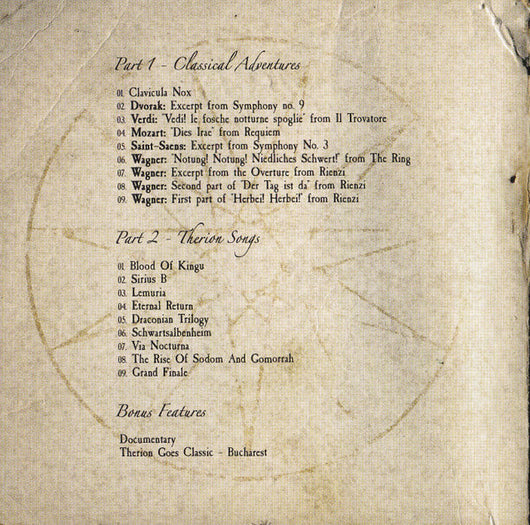 Part 1 - Classical Adventures
01. Clavicula Nox
02. Dvorak: Excerpt from Symphony no. 9
03. Verdi: "Vedi! le fosche notturne spoglie" from Il Trovatore
04. Mozart: "Dies Irae" from Requiem
05. Saint-Saens: Excerpt from Symphony No. 3
06. Wagner: "Notung! Notung! Niedliches Schwert!" from The Ring
07. Wagner: Excerpt from the Overture from Rienzi
08. Wagner: Second part of "Der Tag ist da" from Rienzi
09. Wagner: First part of "Herbei! Herbei!" from Rienzi
Part 2 - Therion Songs
01. Blood Of Kingu
02. Sirius B
03. Lemuria
04. Eternal Return
05. Draconian Trilogy
06. Schwartsalbenheim
07. Via Nocturna
08. The Rise Of Sodom And Gomorrah
09. Grand Finale
Bonus Features
Documentary
Therion Goes Classic - Bucharest